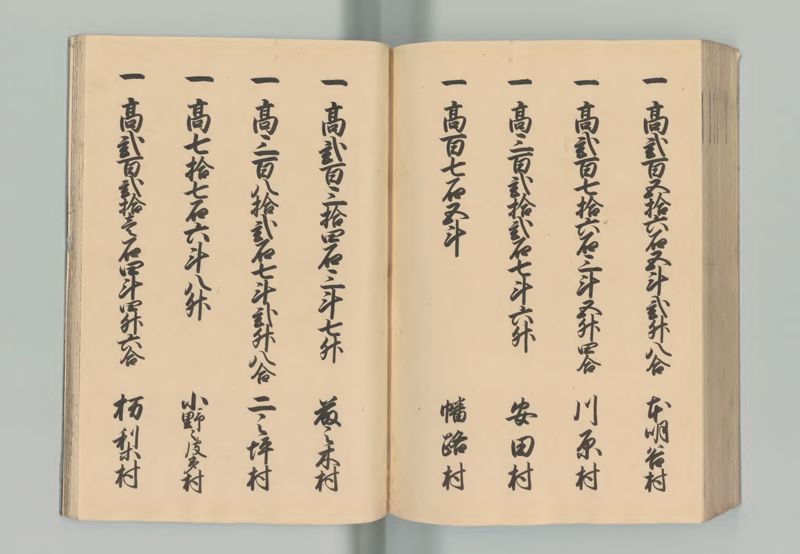 一 高弐百五拾六石五斗弐升八合 本明谷村
一 高弐百七拾六石三斗五升四合 川原村
一 高三百弐拾弐石七斗六升 安田村
一 高百七石五斗 幡路村
一 高弐百三拾四石三斗七升 藪之木村
一 高三百八拾弐石七斗弐升八合 二之坪村
一 高七拾七石六斗八升 小野之村
一 高弐百弐拾壱石四斗四升六合 栃梨村